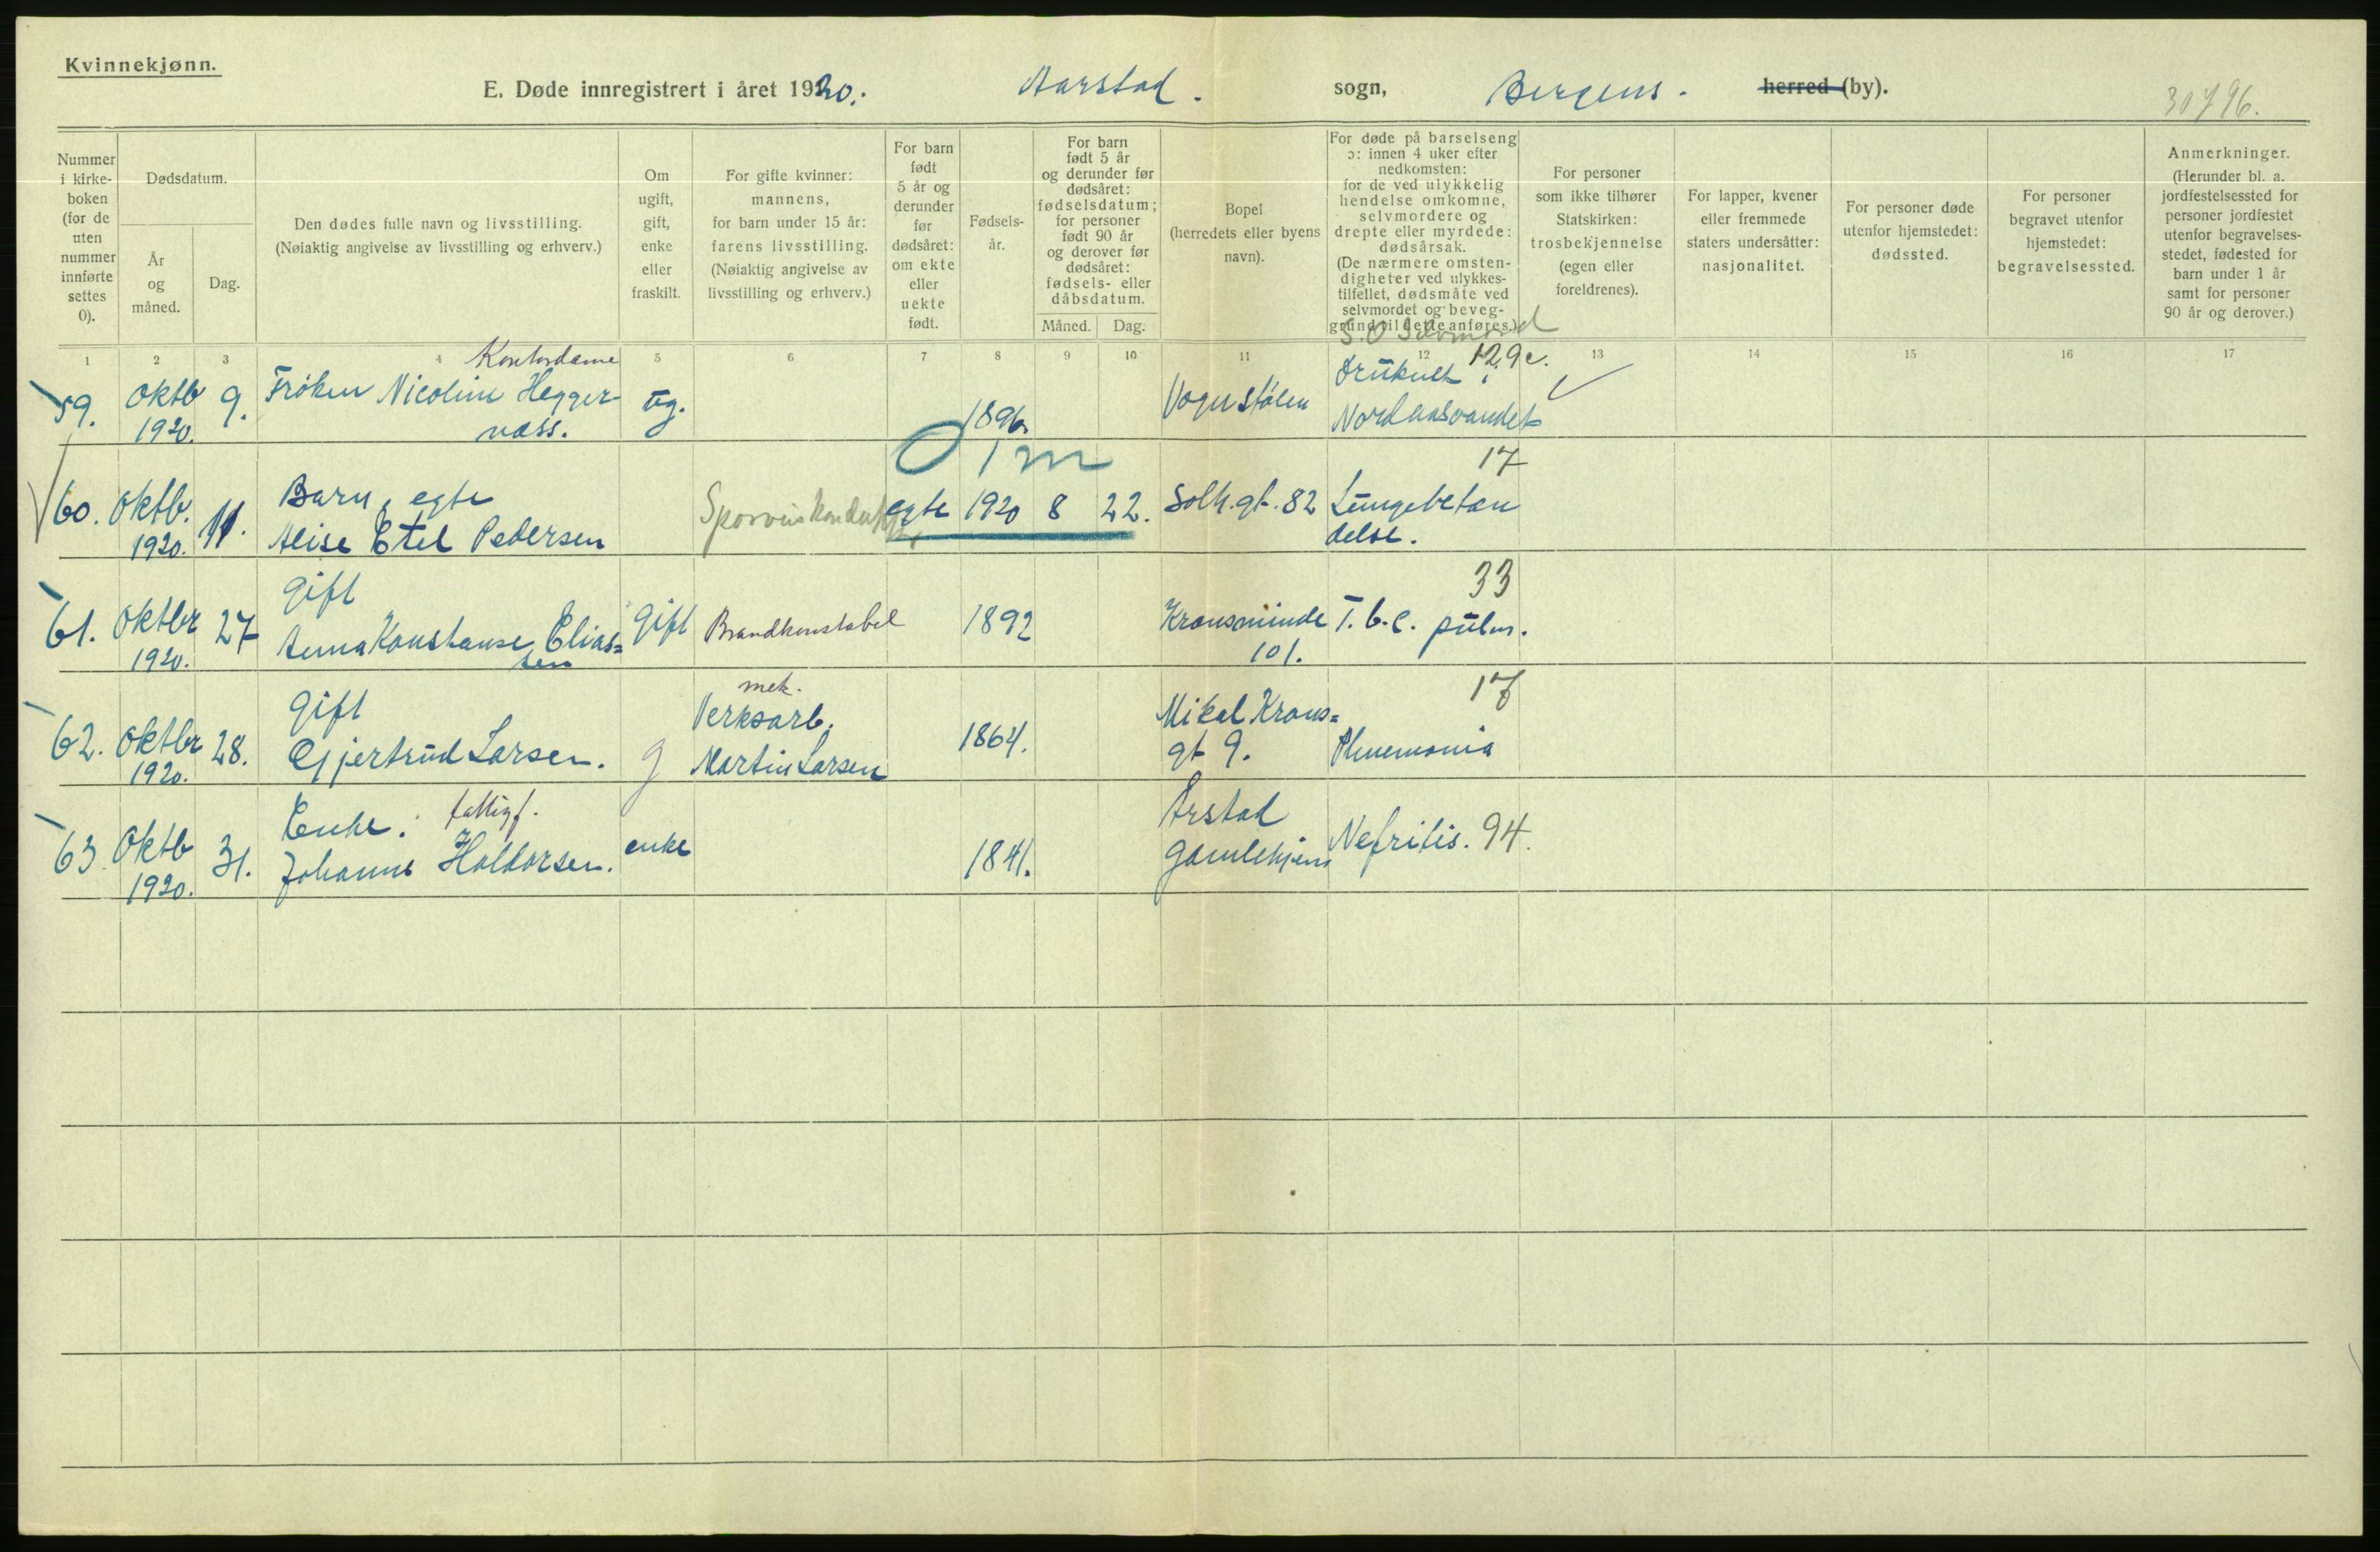 Kvinnekjønn.
E. Døde innregistrert i året 1920. Aarstad. sogn, Bergens. herred (by).
30796.
Nummer i kirkeboken (for de uten nummer innførte settes 0).
Dødsdatum.
År og måned.
Dag.
Den dødes fulle navn og livsstilling.
(Nøiaktig angivelse av livsstilling og erhverv.)
Om ugift, gift, enke eller fraskilt.
For gifte kvinner: mannens, for barn under 15 år: farens livsstilling.
(Nøiaktig angivelse av livsstilling og erhverv.)
For barn født 5 år og derunder før dødsåret: om ekte eller uekte født.
Fødselsår.
For barn født 5 år og derunder før dødsåret: fødselsdatum; for personer født 90 år og derover før dødsåret: fødsels- eller dåbsdatum.
Måned. Dag.
Bopel (herredets eller byens navn).
For døde på barselseng ɔ: innen 4 uker efter nedkomsten: for de ved ulykkelig hendelse omkomne, selvmordere og drepte eller myrdede: dødsårsak.
(De nærmere omstendigheter ved ulykkestilfellet, dødsmåte ved selvmordet og beveggrund til dette anføres.)
For personer som ikke tilhører Statskirken: trosbekjennelse (egen eller foreldrenes).
For lapper, kvener eller fremmede staters undersåtter: nasjonalitet.
For personer døde utenfor hjemstedet: dødssted.
For personer begravet utenfor hjemstedet: begravelsessted.
Anmerkninger.
(Herunder bl. a. jordfestelsessted for personer jordfestet utenfor begravelsesstedet, fødested for barn under 1 år samt for personer 90 år og derover.)
1 2 3 4 5 6 7 8 9 10 11 12 13 14 15 16 17
Kontordame
59. Oktb 1920. 9. Frøken Nicoline Heggernæss. ug. 1896. Vognstølen Druknet Nordåsvandet
60. Oktb. 1920. 11. Barn, egte Alise Etel Pedersen egte 1920 8 22. Solh.gt. 82 Lungebetændelse. 17
61. Oktbr 1920. 27 Gift Anna Konstanse Eliassen Gift Brandkonstabel 1892 Kronsminde 101. T.b.c. pulm. 33
62. Oktbr 1920. 28. Gift Gjertrud Larsen. g mek. Verksarb. Martin Larsen 1864. Mikal Kronsgt 9. Pnuemonia 17
63 Oktb 1920. 31. Enke. fattigf. Johanne Haldorsen. enke 1841. Årstad Gamlehjem Nefritis. 94.